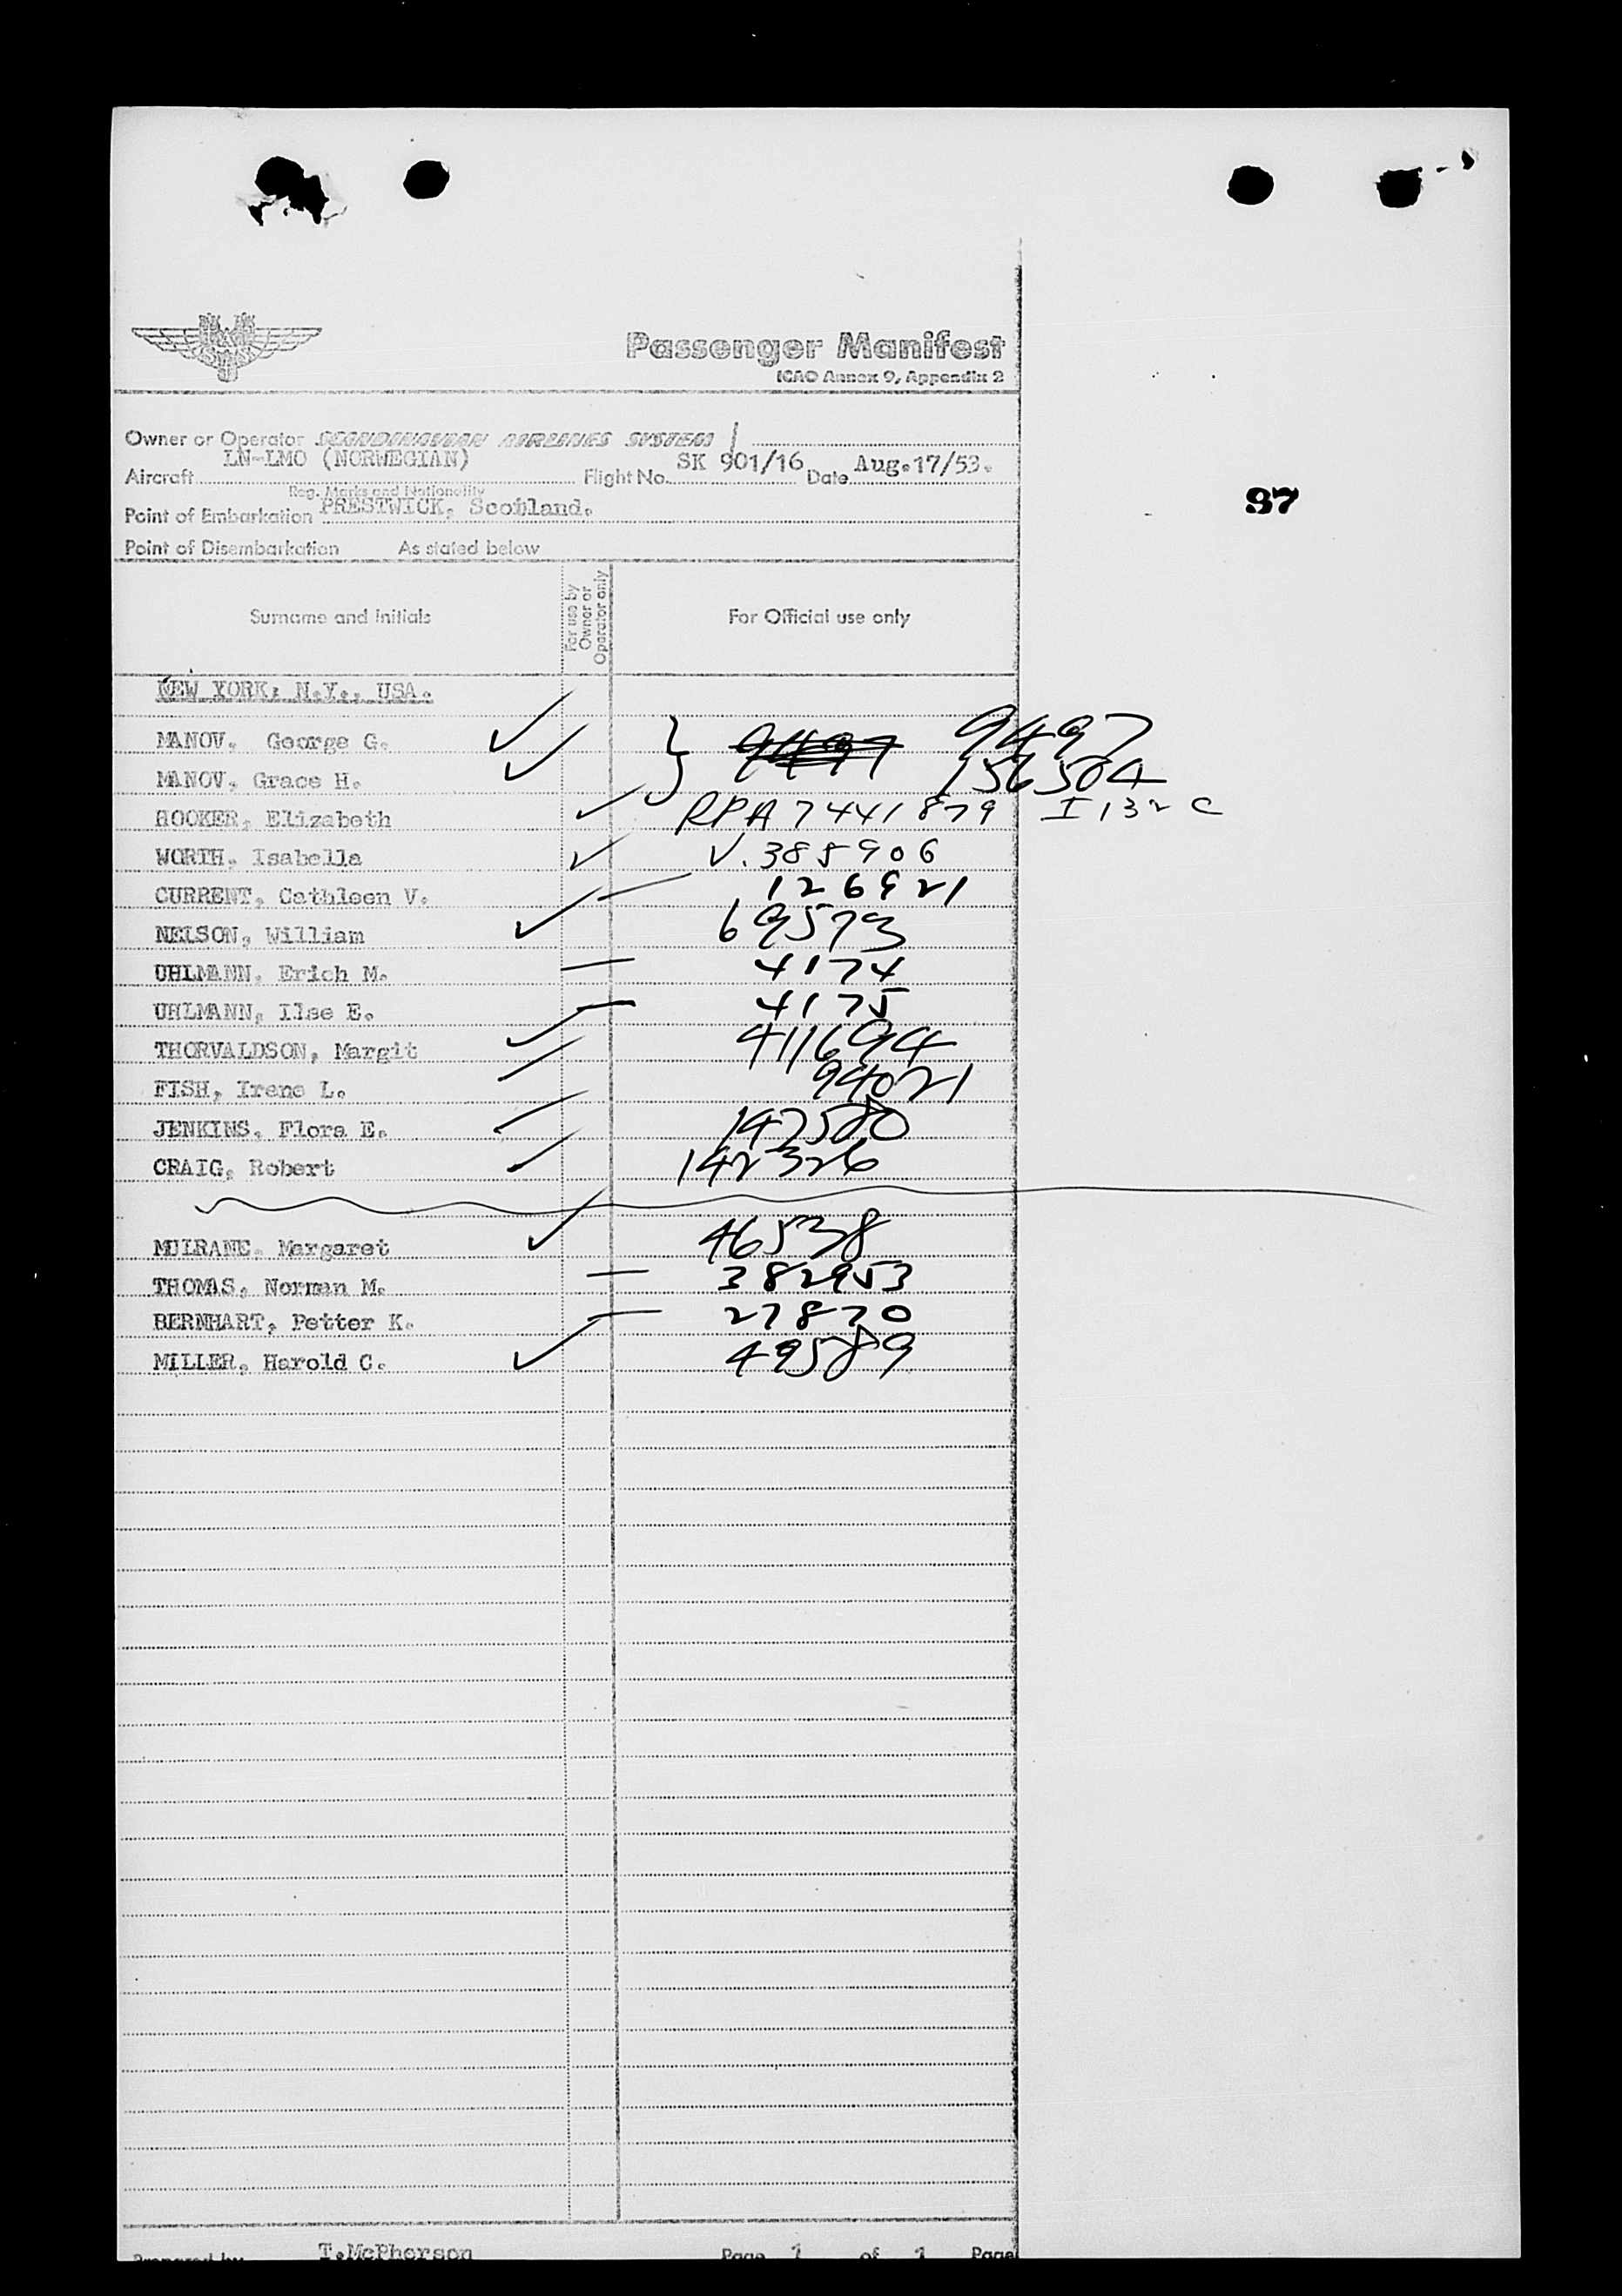 Passenger Manifest
ICAO Annex 9, Appendix 2
Owner or Operator SCANDINAVIAN AIRLINES SYSTEM
Aircraft LN-LMO (NORWEGIAN) Flight No. SK 901/16 Date Aug.17/53.
Reg. Marks and Nationality
Point of Embarkation PRESTWICK, Scotland.
37
Point of Disembarkation As stated below
Surname and Initials For use by Owner or Operator only For Official use only
NEW YORK: N.Y., USA.
MANOV, George G. 9497 9497
MANOV, Grace H. 156504
HOOKER, Elizabeth RPA 7441879 I 132 C
WORTH, Isabella V. 385906
CURRENT, Cathleen V. 126921
NELSON, William 69573
UHLMANN, Erich M. 4174
UHLMANN, Ilse E. 4175
THORVALDSON, Margit 411694
FISH, Irene L. 94021
JENKINS, Flora E. 147580
CRAIG, Robert 142326
MULRANE, Margaret 46538
THOMAS, Norman M. 382953
BERNHART, Petter K. 27870
MILLER, Harold C. 49589
Prepared by T.McPherson Page 1 of 1 Page